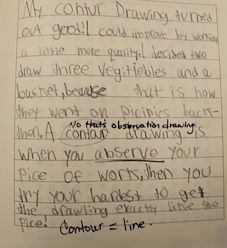 My contur Drawing turned
out good! I could improve by working
a little more quality. I decided two
draw three vegitiebles and a
busket, because that is how
they went on picinics back
then. A contour drawing is
No thats observation drawing
when you abservo your
pice of work, then you
try your hardest to get
the drawling exactly like the
pice!
Contour = line.